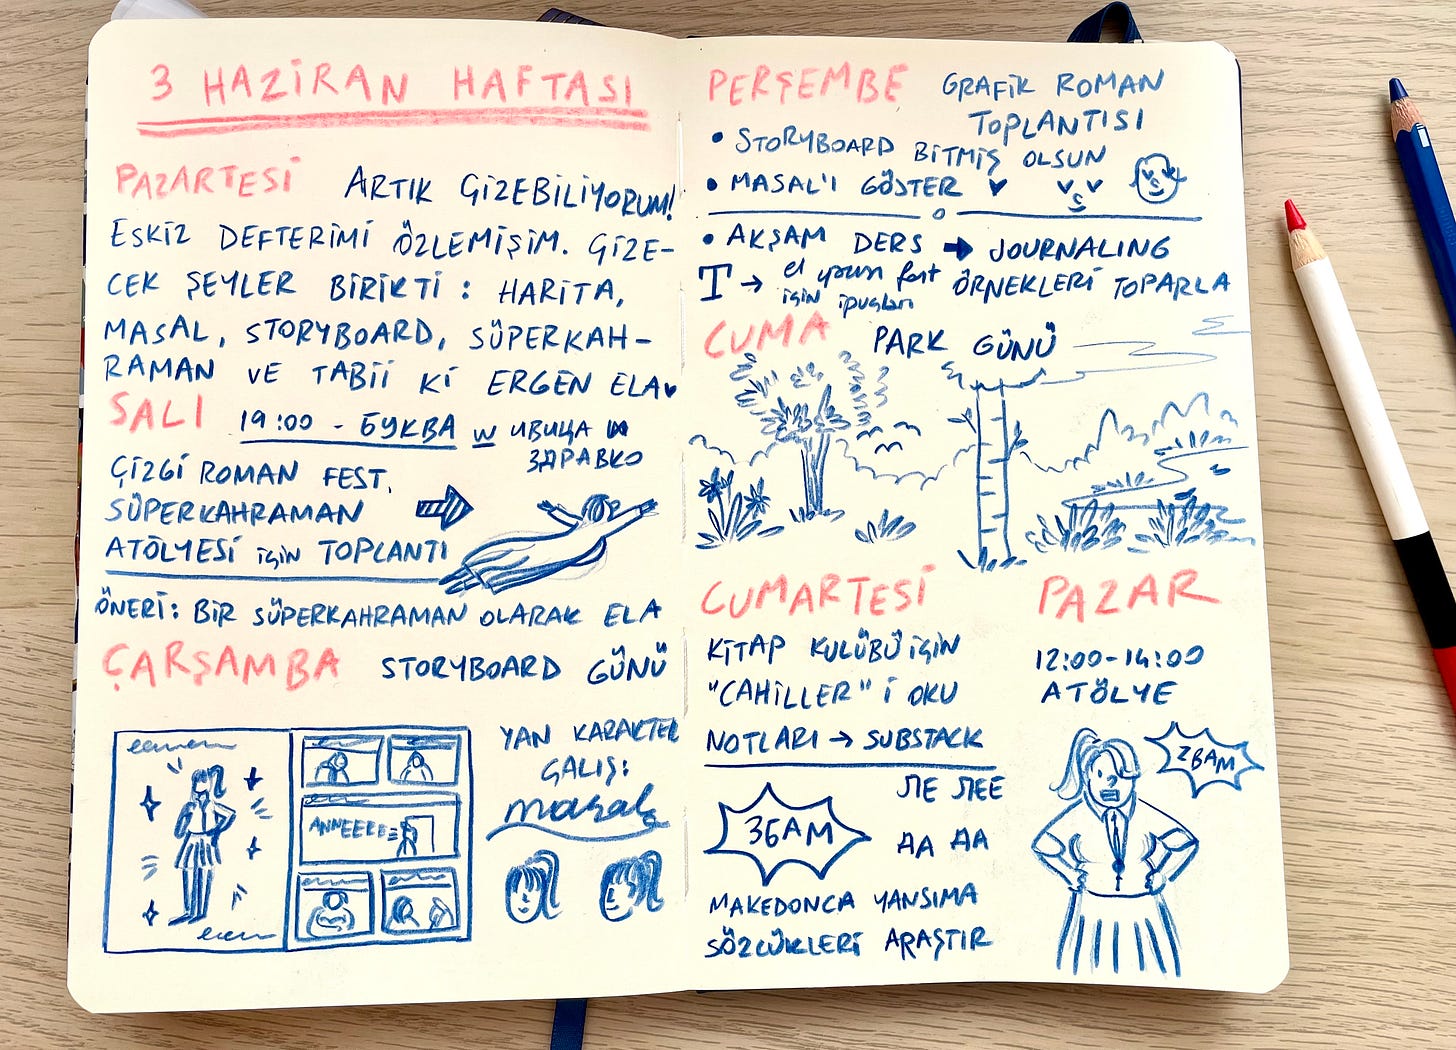 3 HAZİRAN HAFTASI
PAZARTESİ ARTIK ÇİZEBİLİYORUM!
ESKİZ DEFTERİMİ ÖZLEMİŞİM. ÇİZE-
CEK ŞEYLER BİRİKTİ : HARİTA,
MASAL, STORYBOARD, SÜPERKAH-
RAMAN VE TABİİ Kİ ERGEN ELA♥
SALI 19:00 - БУКВА w ИВИЦА
ЗДРАВКО
ÇİZGİ ROMAN FEST.
SÜPERKAHRAMAN
ATÖLYESİ için TOPLANTI
ÖNERİ: BİR SÜPERKAHRAMAN OLARAK ELA
ÇARŞAMBA STORYBOARD GÜNÜ
ANNEEEE
YAN KARAKTER
ÇALIŞ:
masal
PERŞEMBE GRAFİK ROMAN
TOPLANTISI
• STORYBOARD BİTMİŞ OLSUN
• MASAL'I GÖSTER ♥
• AKŞAM DERS → JOURNALING
ÖRNEKLERİ TOPARLA
T → el yazısı font
için ipuçları
CUMA PARK GÜNÜ
CUMARTESİ
KİTAP KULÜBÜ için
"CAHİLLER" i OKU
NOTLARI → SUBSTACK
ЗБАМ
ЛЕ ЛЕЕ
АА АА
MAKEDONCA YANSIMA
SÖZCÜKLERİ ARAŞTIR
PAZAR
12:00-14:00
ATÖLYE
ZBAM